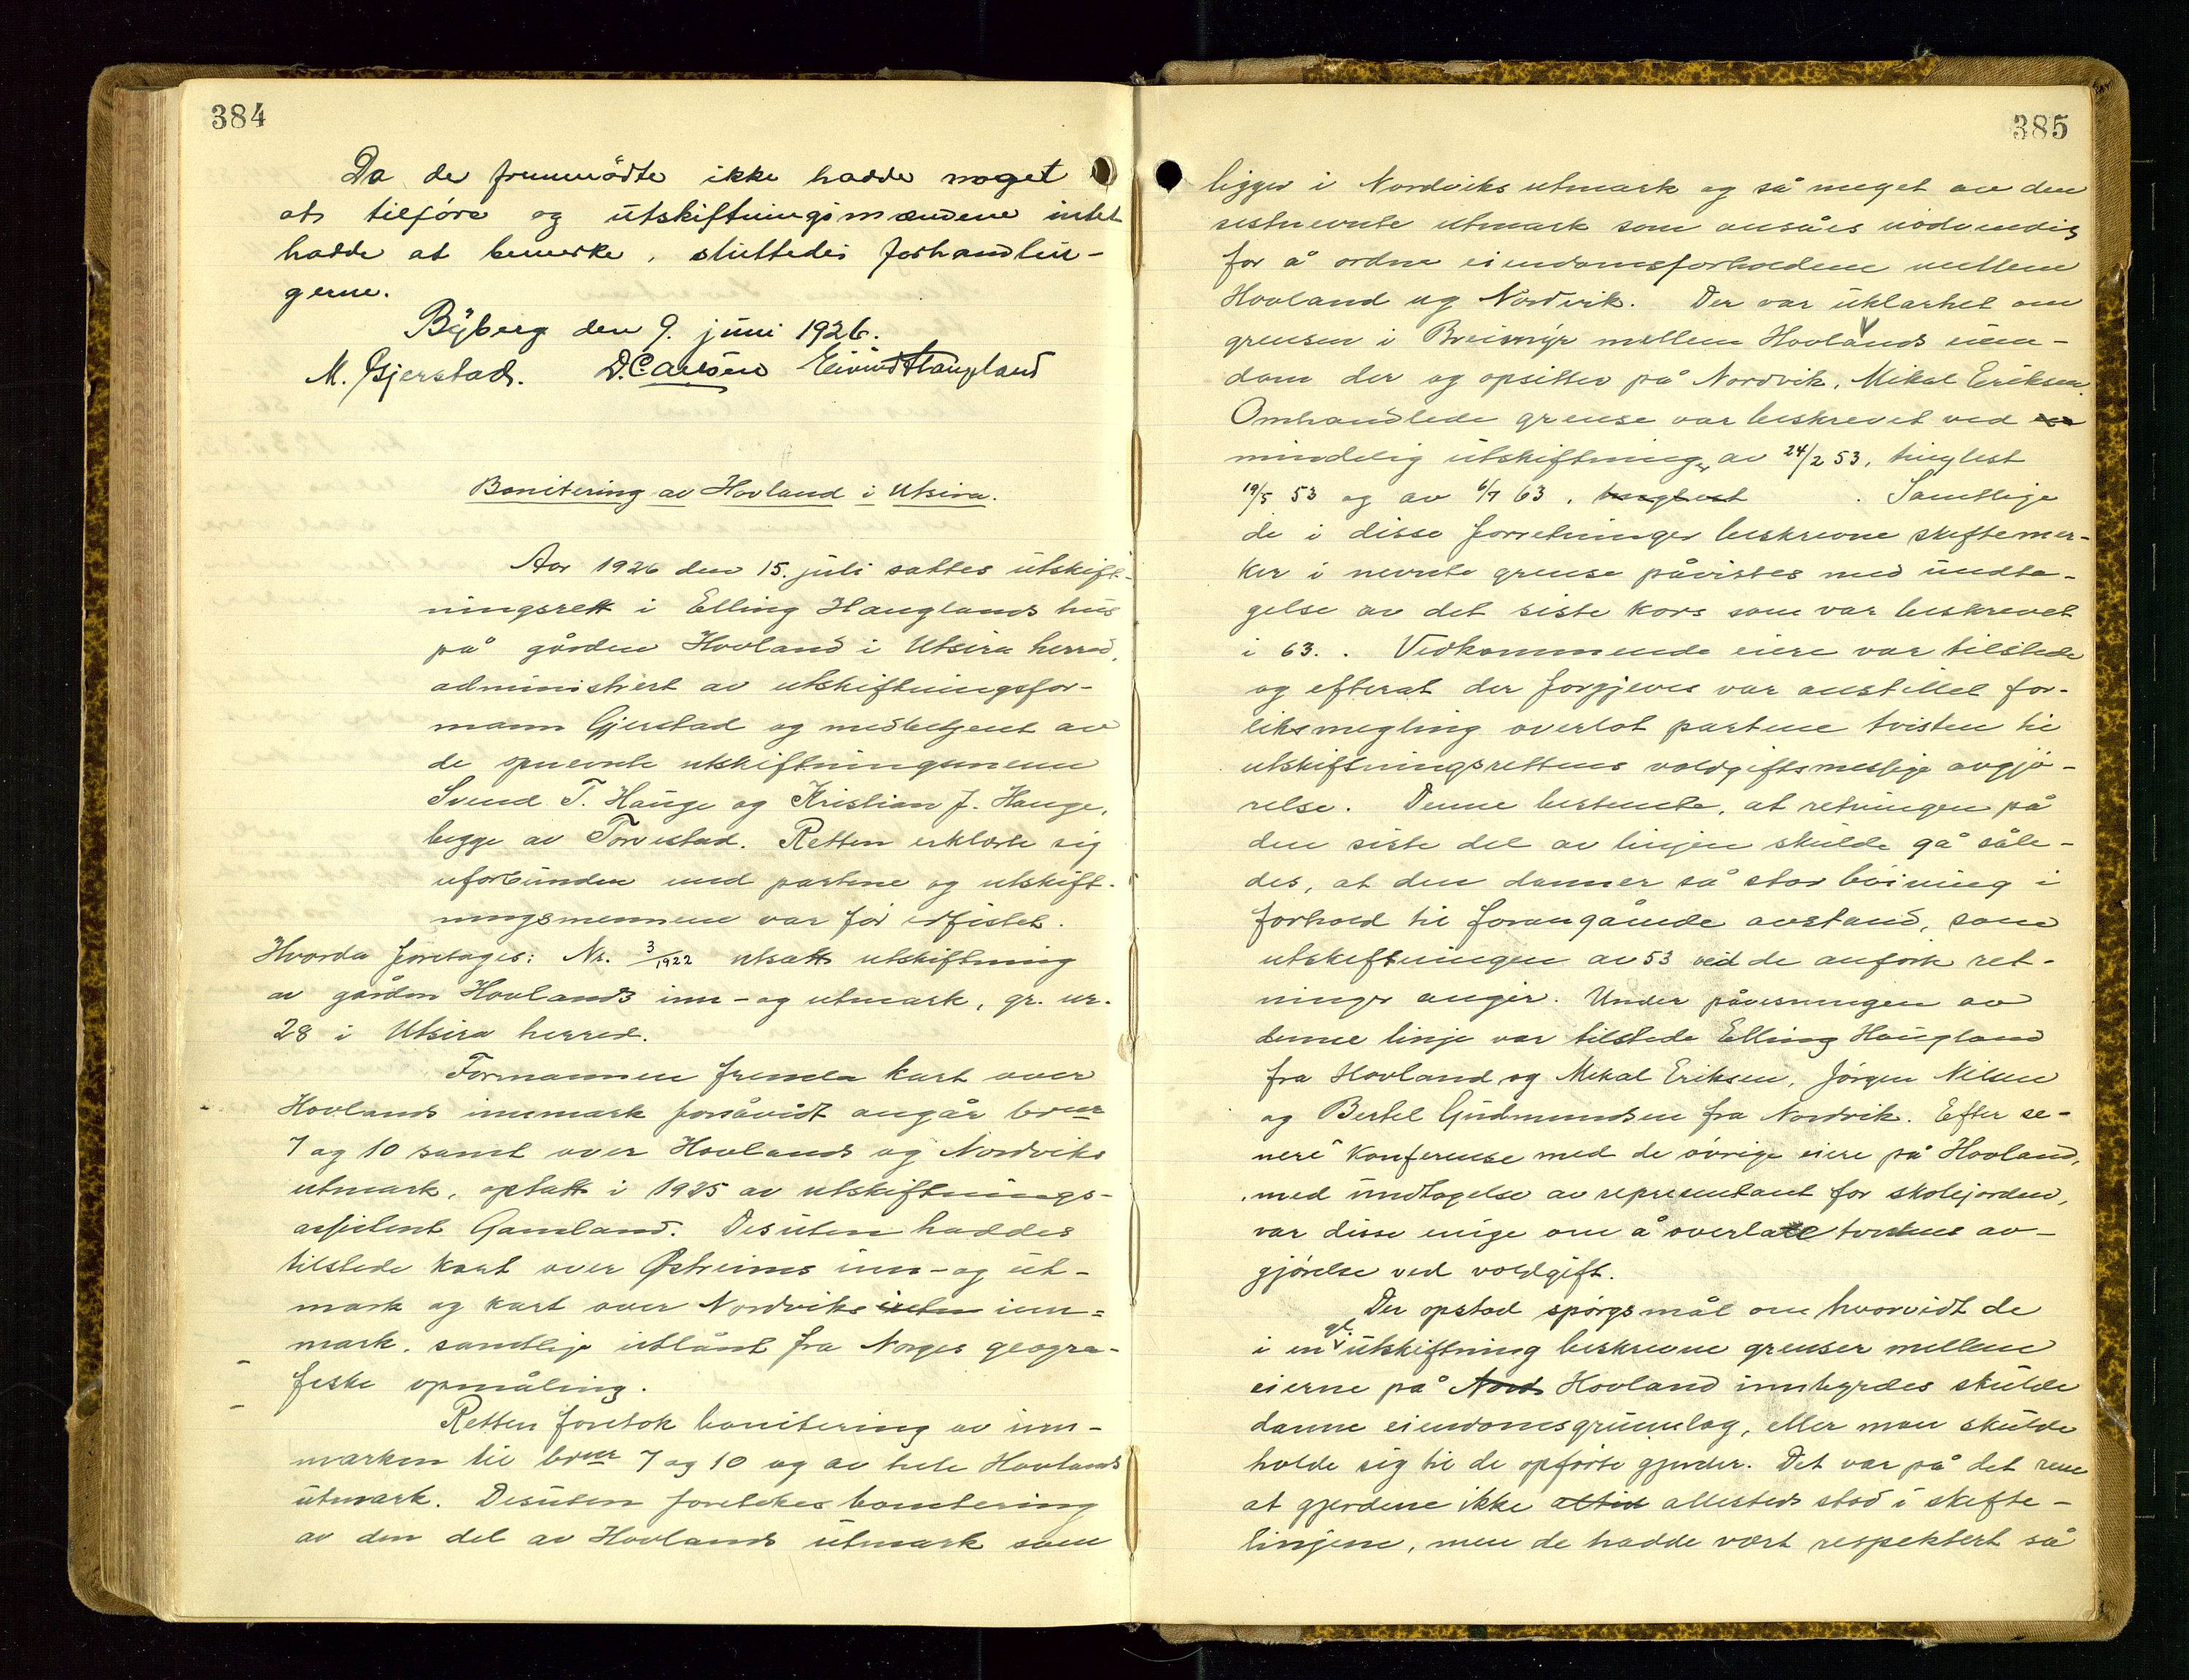 384
Da de fremmødte ikke hadde noget
at tilføre og utskiftningsmændene intet
hadde at bemerke, sluttedes forhandlin-
gerne.
Byberg den 9. juni 1926.
M. Gjerstad. D. Carlsen Eivind Haugland
Bonitering av Hovland i Utsira.
Aar 1926 den 15. juli sattes utskift-
ningsrett i Elling Hauglands hus
på gården Hovland i Utsira herred,
administrert av utskiftningsfor-
mann Gjerstad og medbetjent av
de opnevnte utskiftningsmenn
Svend T. Hauge og Kristian J. Hauge,
begge av Torvestad. Retten erklærte sig
uforbunden med partene og utskift-
ningsmennene var før edfistet.
Hvorda foretages: Nr. 3/1922 utsatt utskiftning
av gården Hovlands inn- og utmark, gr. nr.
28 i Utsira herred.
Formannen fremla kart over
Hovlands innmark forsåvidt angår brnr
7 og 10 samt over Hovlands og Nordviks
utmark, optatt i 1925 av utskiftnings-
assistent Gamland. Desuten haddes
tilstede kart over Østreims inn- og ut-
mark og kart over Nordviks inn-
mark, samtlige utlånt fra Norges geogra-
fiske opmåling.
Retten foretok bonitering av inn-
marken til brnr 7 og 10 og av hele Hovlands
utmark. Desuten foretokes bonitering
av den del av Hovlands utmark som
385
ligger i Nordviks utmark og så meget av den
sistnevnte utmark som ansåes nødvendig
for å ordne eiendomsforholdene mellem
Hovland og Nordvik. Der var uklarhet om
grensen i Breimyr mellem Hovlands eien-
dom der og opsitter på Nordvik, Mikal Eriksen.
Omhandlede grense var beskrevet ved
mindelig utskiftninger av 24/2 53, tinglest
19/5 53 og av 6/7 63, tinglest . Samtlige
de i disse forretninger beskrevne skiftemer-
ker i nevnte grense påvistes med undta-
gelse av det siste kors som var beskrevet
i 63. . Vedkommende eiere var tilstede
og efterat der forgjeves var anstillet for-
liksmegling overlot partene tvisten til
utskiftningsrettens voldgiftsmessige avgjø-
relse. Denne bestemte, at retningen på
den siste del av linjen skulde gå såle-
des, at den danner så stor bøining i
forhold til forangående avstand, som
utskiftningen av 53 ved de anførte ret-
ninger angir. Under påvisningen av
denne linje var tilstede Elling Haugland
fra Hovland og Mikal Eriksen, Jørgen Nilsen
og Bertel Gudmundsen fra Nordvik. Efter se-
nere konferense med de øvrige eiere på Hovland,
med undtagelse av representant for skolejorden,
var disse enige om å overlate tvistens av-
gjørelse ved voldgift.
Der opstod spørgsmål om hvorvidt de
i en gl. utskiftning beskrevne grenser mellem
eierne på Nord Hovland innbyrdes skulde
danne eiendomsgrunnlag, eller man skulde
holde sig til de opførte gjerder. Det var på det rene
at gjerdene ikke altid allesteds stod i skifte-
linjene, men de hadde vært respektert så